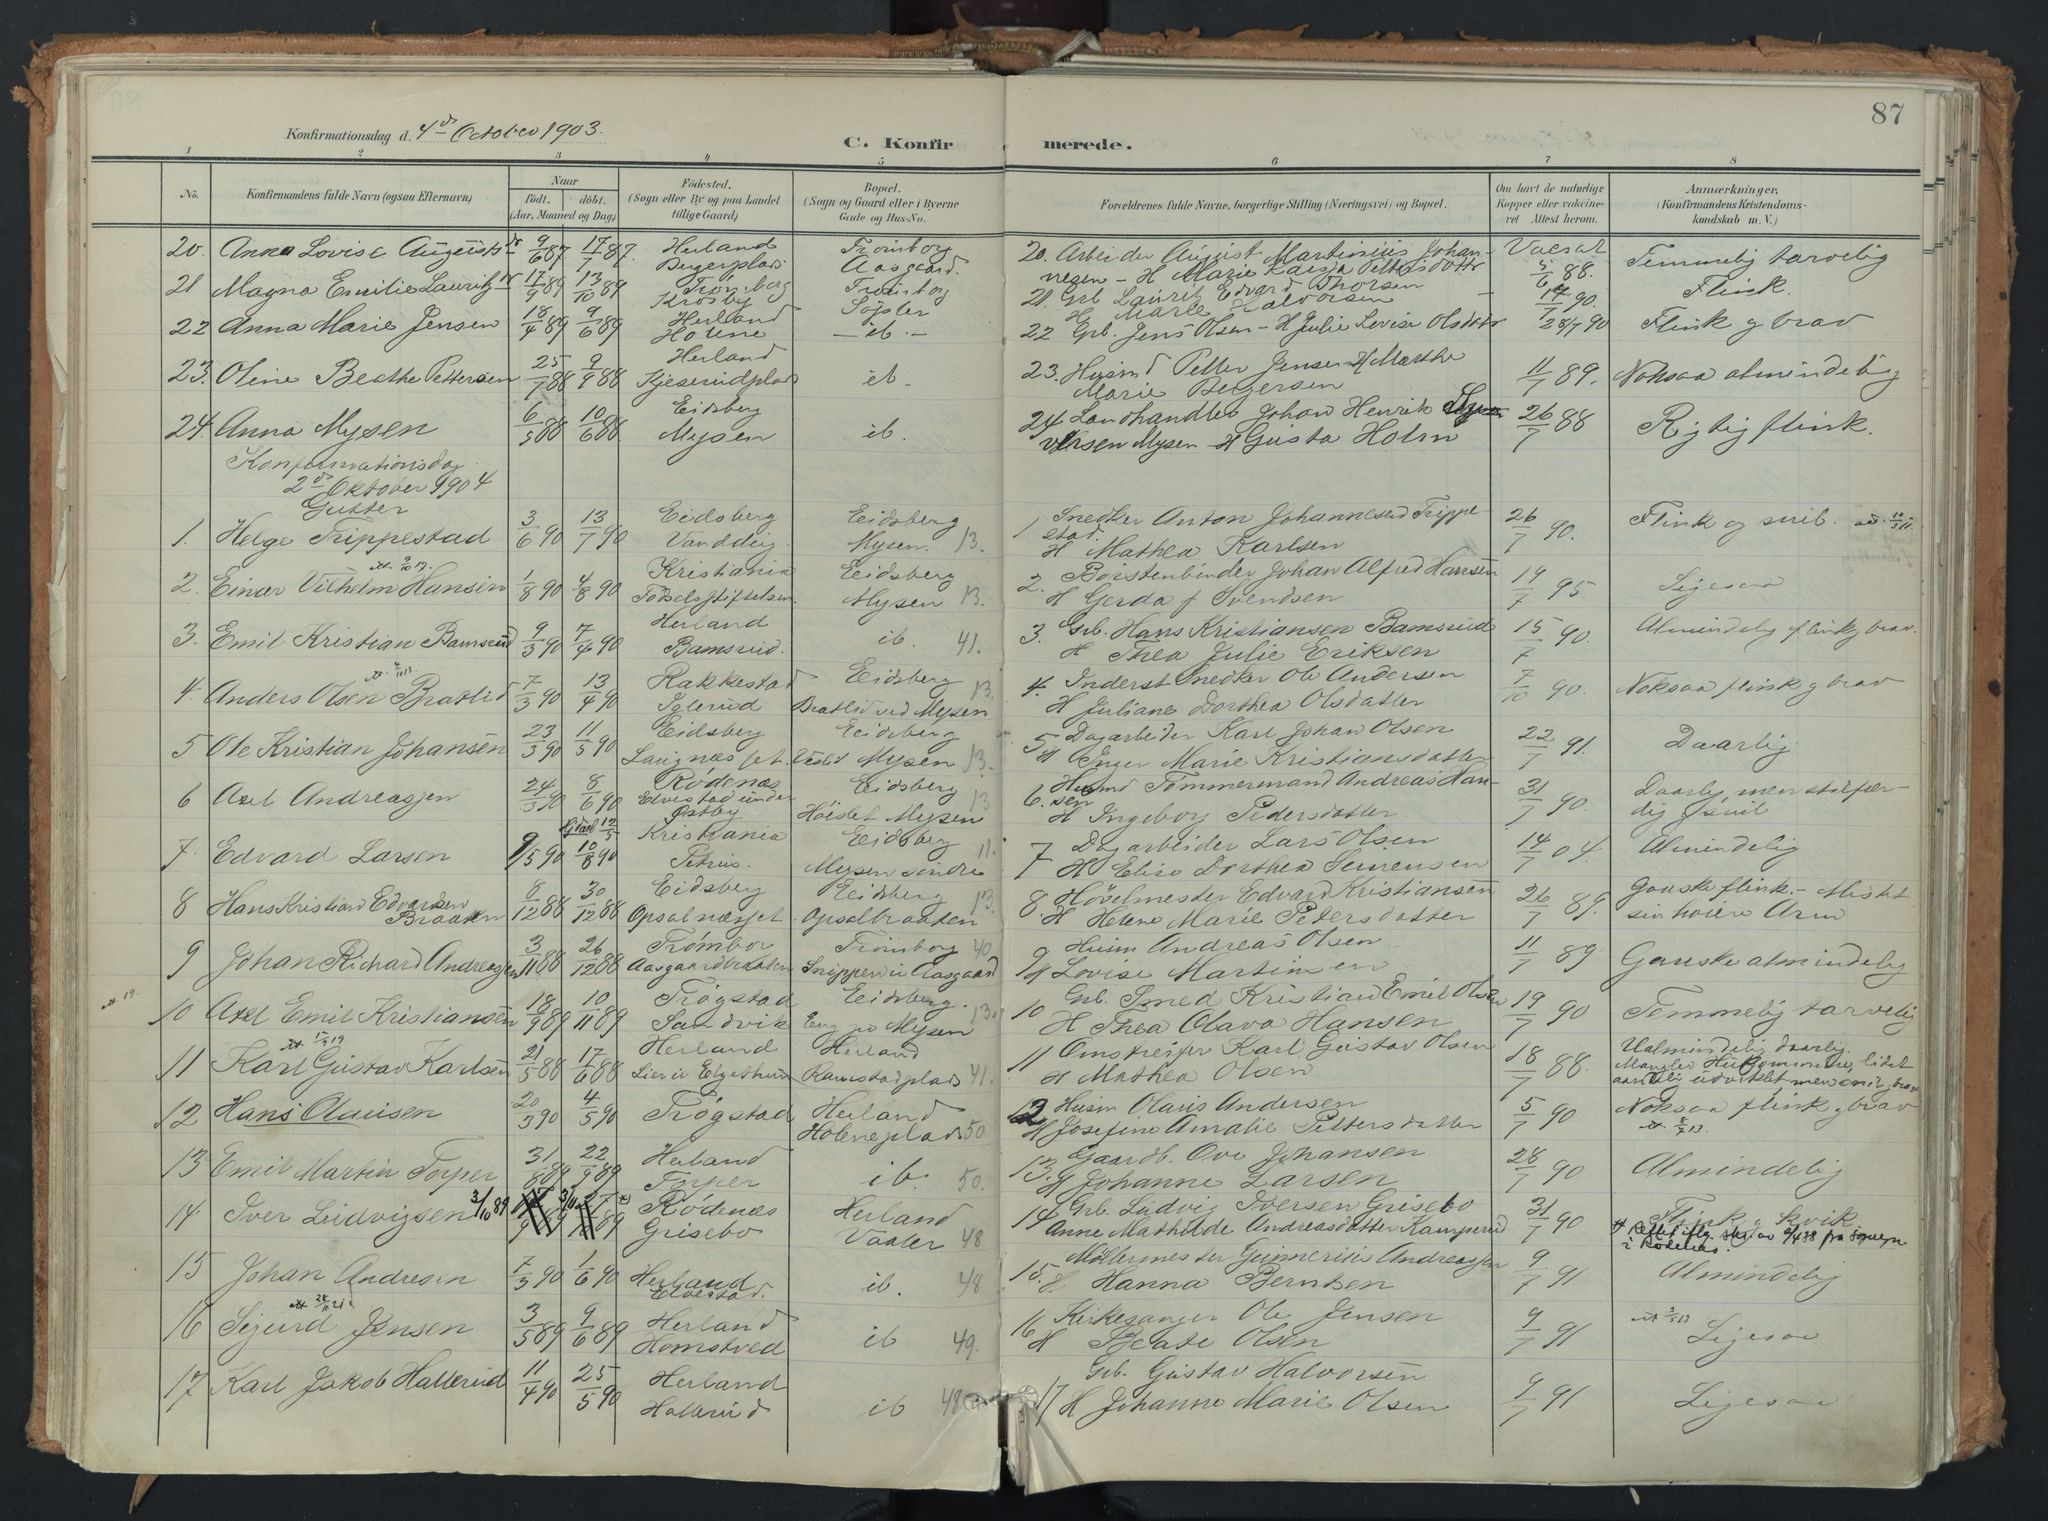 87
Konfirmationsdag d. 4de October 1903.
C. Konfirmerede.
1 2 3 4 5 6 7 8
No.
Konfirmandens fulde Navn (ogsaa Efternavn)
Naar
født. døbt.
(Aar, Maaned og Dag)
Fødested.
(Sogn eller By og paa Landet
tillige Gaard)
Bopæl.
(Sogn og Gaard eller i Byerne
Gade og Hus-No.
Forældrenes fulde Navne, borgerlige Stilling (Næringsvei) og Bopæl.
Om havt de naturlige
Kopper eller vakcine-
ret Attest herom.
Anmærkninger.
(Konfirmandens Kristendoms-
kundskab m. V.)
20. Anna Lovise Augustsdtr 9/6 87 17/7 87. Herland Trömborg 20. Arbeider August Martinius Johan- Vacsat Temmelig tarvelig
Aasgaard. nesen - H Marie Kaisa Pettersdattr 88.
21 Magna Emilie Lauritzdtr 17/9 89 13/10 89 Trömborg Trömborg 21. Grb Lauritz Edvard Thorsen Flink.
Krosby Söpler H Marie Halvorsen 90.
22 Anna Marie Jensen 18/4 89 9/6 89 Herland - ib. - 22 Grb. Jens Olsen - H Julie Lovise Olsdatr 28/7 90 Flink og brav
Holene
23. Oline Beathe Pettersen 25/7 88 9/9 88 Herland ib. 23. Husmd Petter Jensen H Marthe 11/7 89. Noksaa almindelig
Kjeserudplads Marie Bergersen
24. Anna Mysen 6/5 88 10/6 88 Eidsberg ib. 24 Landhandler Johan Henrik 26/7 88 Rigtig flink.
Mysen Mysen H Gusta Holm
Konfirmationsdag
2de Oktober 1904
Gutter
1. Helge Trippestad 3/6 90 13/7 90 Eidsberg Eidsberg 1 Snedker Anton Johannesen Trippe 26/7 90. Flink og snil.
Mysen. 13. stad. H Mathea Karlsen
2. Einar Vilhelm Hansen 1/8 90 4/8 90 Kristiania Eidsberg 2. Börstenbinder Johan Alfred Hansen 19/7 95. Ligesaa
Födselsstiftelsen. Mysen 13. H Gerda f Svendsen
3. Emil Kristian Bamsrud 9/3 90 7/4 90 Herland ib. 41. 3. Grb. Hans Kristiansen Bamsrud 15/7 90. Almindelig flink og brav.
Bamsrud. H Thea Julie Eriksen
4. Anders Olsen Bratlid 7/3 90 13/4 90 Rakkestad Eidsberg 13. 4. Inderst Snedker Ole Andersen 7/10 90. Noksaa flink og brav
Iglerud Bratlid ved Mysen H Juliane Dorthea Olsdatter
5 Ole Kristian Johansen 23/3 90 11/5 90 Eidsberg Eidsberg 5 Dagarbeider Karl Johan Olsen 22/7 91. Daarlig
Mysen 13. H Inger Marie Kristiansdatter
6 Axel Andreassen 24/3 90 8/6 90 Rødenæs Eidsberg 6. Husmd Tömmermand Andreas Han- 31/7 90. Daarlig men stilfær-
Elvestad under Höislet Mysen 13 sen dig og snil
Östby H Ingeborg Pedersdatter
7. Edvard Larsen 9/5 90 Hjdøbt 12/5 10/8 90 Kristiania Eidsberg 11. 7 Dagarbeider Lars Olsen 14/7 04. Almindelig
Petrus. Mysen söndre H Elise Dorthea Sörensen
8 Hans Kristian Edvardsen 8/12 88 30/12 88 Eidsberg Eidsberg 13. 8 Hövelmester Edvard Kristiansen 26/7 89. Ganske flink. - Mistet
Braaten Opsalbraaten H Helene Marie Petersdatter sin høire Arm
9 Johan Richard Andreassen 3/11 88 26/12 88 Trömbor Trömborg 40 9 Husm Andreas Olsen 11/7 89 Ganske almindelig
Aasgaardbraaten Snippen u Aasgaard H Lovise Martinsen
10 Axel Emil Kristiansen 18/9 89 10/11 89 Trøgstad Eidsberg. 13. 10 Grb. Smed Kristian Emil Olsen 19/7 90 Temmelig tarvelig
Sandvik Eng pr Mysen H Thea Olava Hansen
11 Karl Gustav Karlsen 21/5 88 17/6 88 Herland Herland 11 Omstreifer Karl Gustav Olsen 18/7 88. Ualmindelig daarlig.
Ramstadplads 41. H Mathea Olsen Mangler Hukommelse, lidet
aandelig udviklet men snil, brav
12 Hans Olausen 20/3 90 4/5 90 Trøgstad Herland 12 Husm Olaus Andersen 5/7 90 Noksaa flink og brav
Holeneplads 50. H Josefine Amalie Pettersdatter
13 Emil Martin Torper 31/8 89 22/9 89 Herland ib. 50. 13. Gaardb. Ove Johansen 28/7 90 Almindelig
Torper H Johanne Larsen
14 Iver Ludvigsen 3/10 89 Rødenæs Herland 14 Grb. Ludvig Iversen Grisebo 31/7 90 Flink og kvik
Grisebo Vaaler 48 Anne Mathilde Andreasdatter Kamperud
Rettet iflg. skr. av 9/4 38 fra sognepr
i Rödenes.
15 Johan Andresen 7/3 90 1/6 90 Herland ib. 48 15. Møllermester Gunnerius Andreassen 9/7 91. Almindelig
Elvestad. H Hanna Berntsen
16 Sigurd Jensen 3/5 89 9/6 89 Herland ib 49. 16 Kirkesanger Ole Jensen 9/7 91 Ligesaa
Homstved H Beate Olsen
17 Karl Jakob Hallerud 11/4 90 25/5 90 Herland ib 48 17 Grb. Gustav Halvorsen 9/7 91 Ligesaa
Hallerud H Johanne Marie Olsen